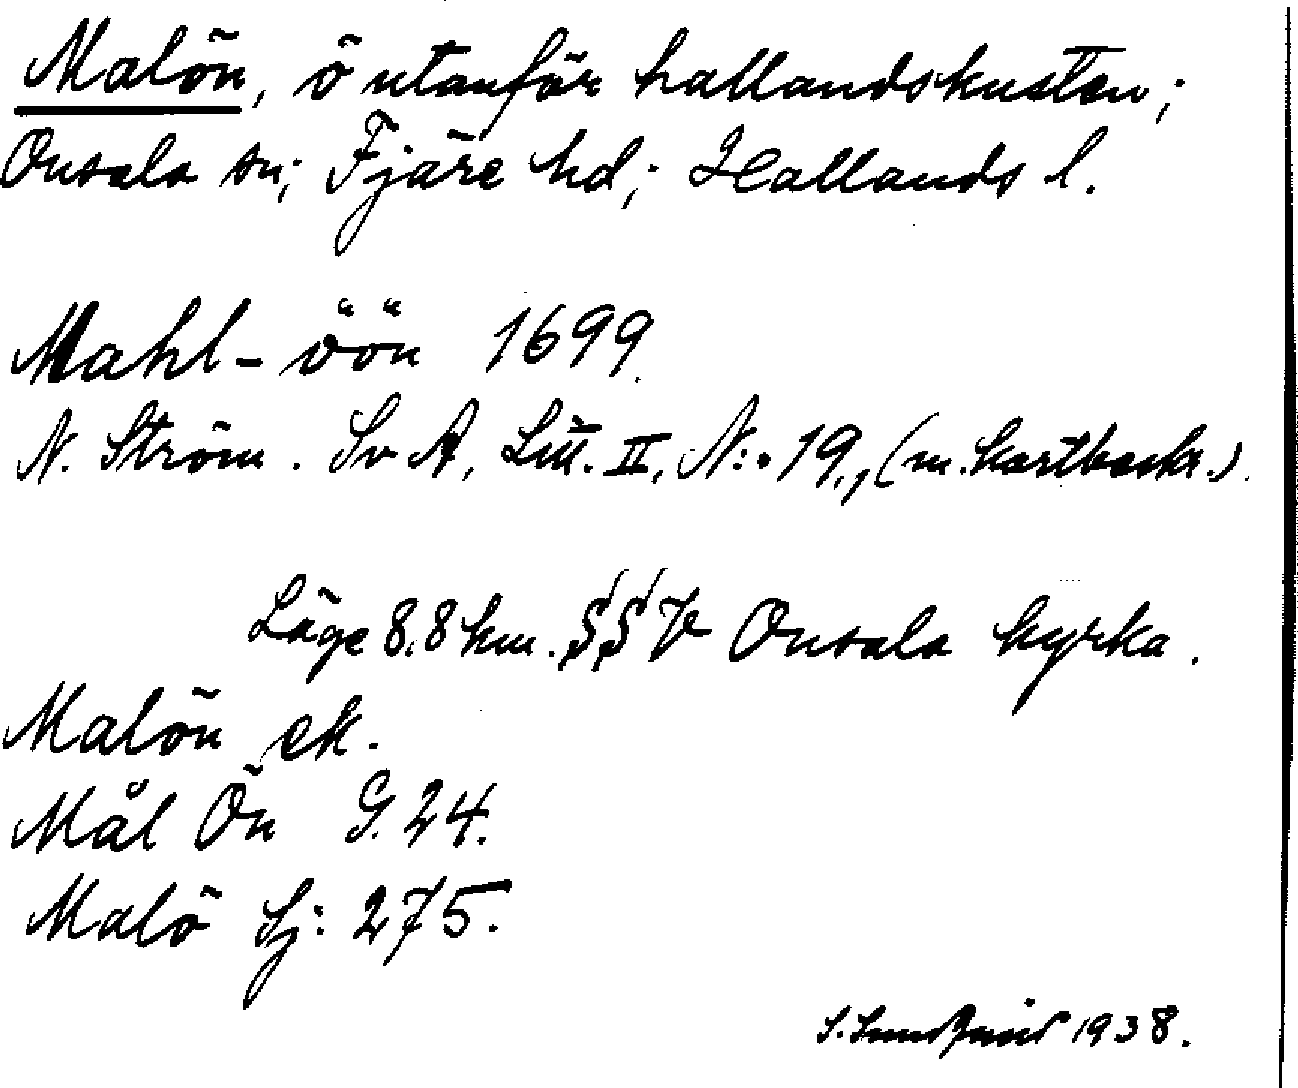 Malön, ö utanför hallandskusten;
Onsala sn; Fjäre hd; Hallands l.
Mahl-öön 1699.
N. Ström. Sv A, Litt. II, N:o 19., (m. kartbeskr.).
Läge 8.8 km. SSV Onsala kyrka.
Malön ek.
Mål Ön G. 24.
Malö Sj: 275.
1938.